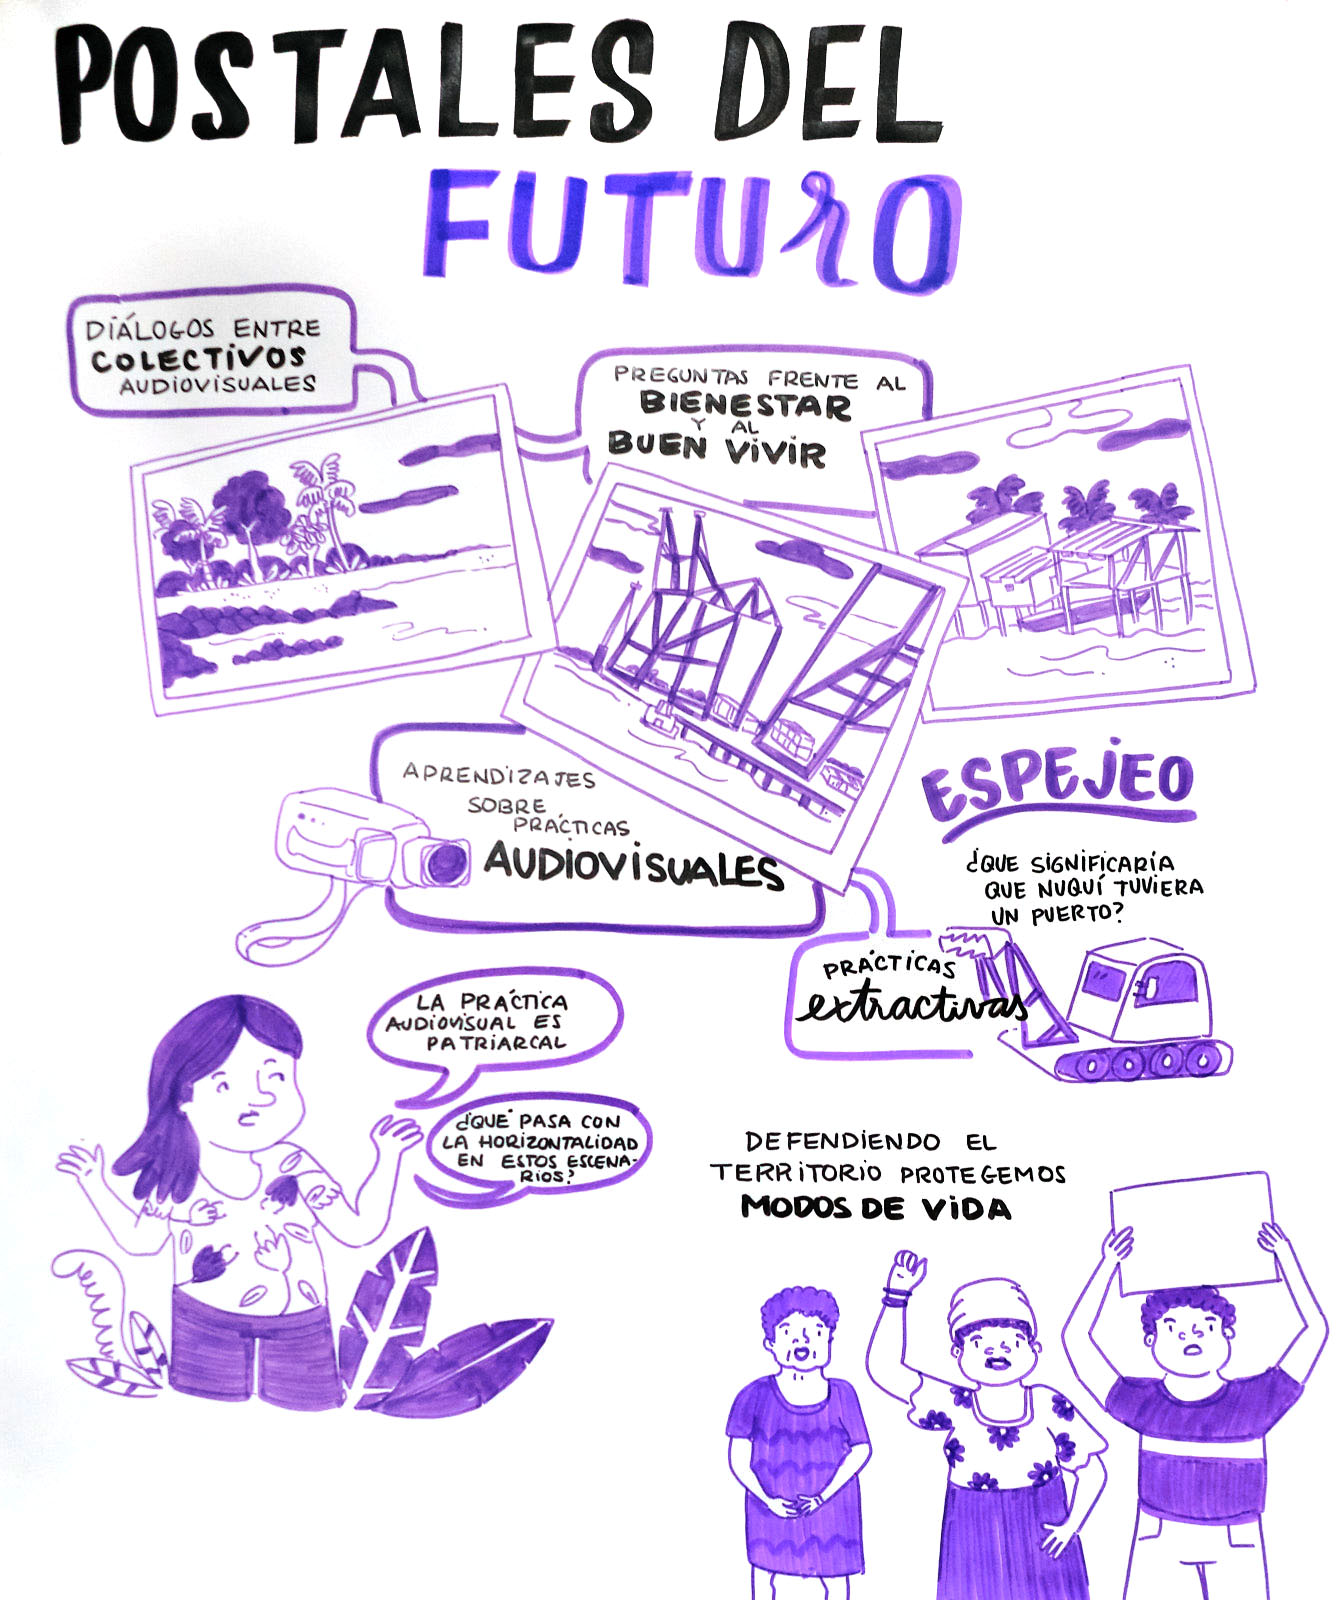 POSTALES DEL
FUTURO
DIÁLOGOS ENTRE
COLECTIVOS
AUDIOVISUALES
PREGUNTAS FRENTE AL
BIENESTAR
Y AL
BUEN VIVIR
APRENDIZAJES
SOBRE
PRÁCTICAS
AUDIOVISUALES
ESPEJEO
¿QUE SIGNIFICARÍA
QUE NUQUÍ TUVIERA
UN PUERTO?
PRÁCTICAS
extractivas
LA PRÁCTICA
AUDIOVISUAL ES
PATRIARCAL
¿QUÉ PASA CON
LA HORIZONTALIDAD
EN ESTOS ESCENA-
RIOS?
DEFENDIENDO EL
TERRITORIO PROTEGEMOS
MODOS DE VIDA